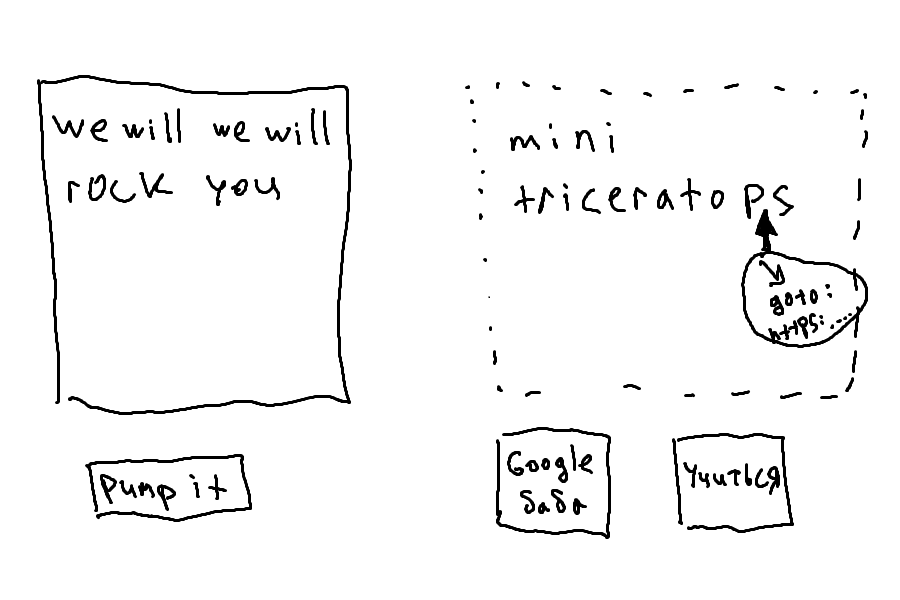 we will we will
rock you
mini
triceratops
goto:
https:....
Pump it
Google
баба
Учиться